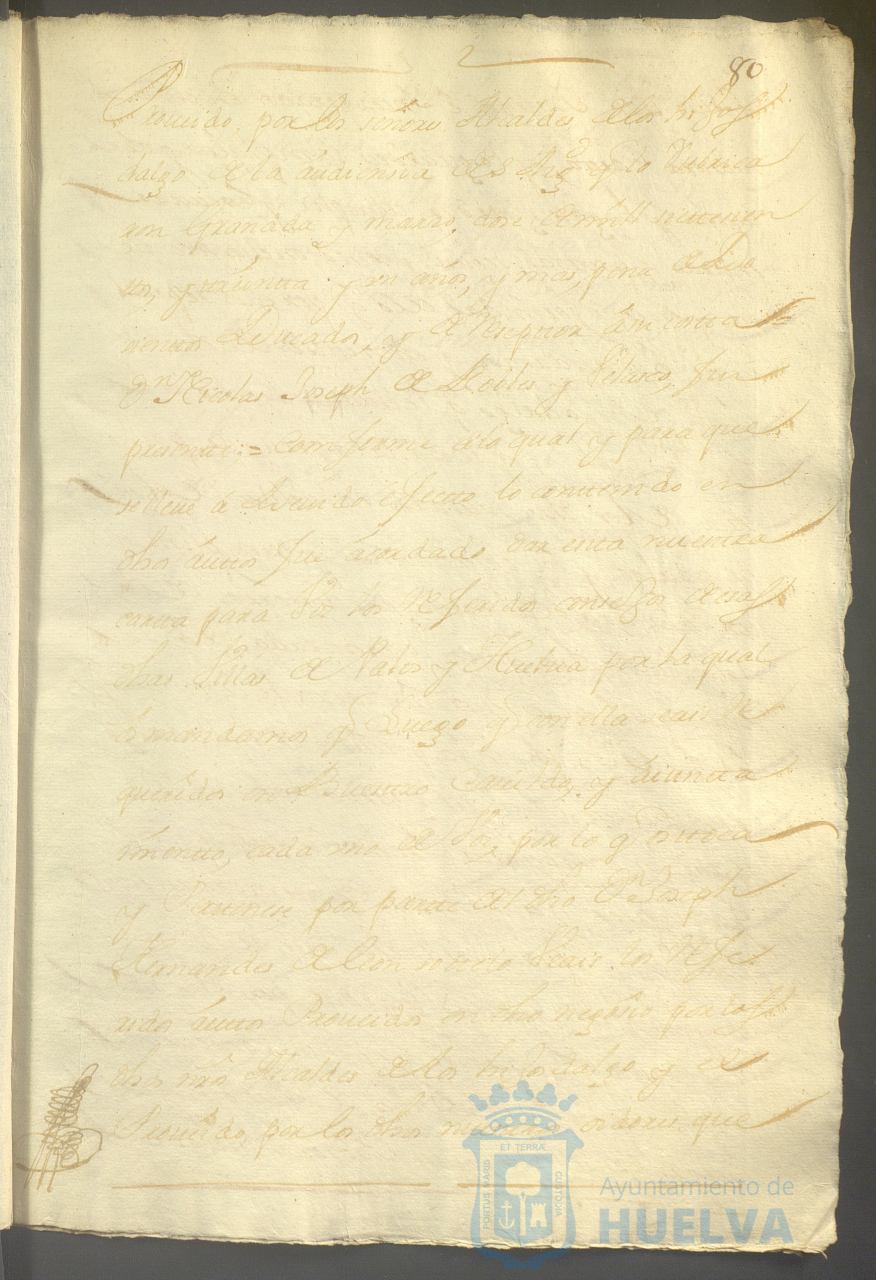 80
Proueido por los señores Alcaldes de los hijos
dalgo de la Audiencia de S. Mgd y lo Rubrica
ron Granada y marzo dose de mill setesien
tos, y treintta y un años, y mas, pena de Do
scienttos Ducados, y de Reseptor a su costta =
Dn Nicolas Joseph de Robles y Velasco, fui
presente = Comforme a lo qual y para que
se lleue a deuido efectto lo conttenido en
dhos auttos fue acordado dar estta nuesttra
cartta para Vos los Referidos consejos de esas
dhas Villas de Palos y Huelua por la qual
os mandamos q Luego q con ella seais Re
queridos en Buesttro Cauildo, y Aiuntta
mientto, cada uno de Vos, por lo q os ttoca
y Pertenese por partte del dho Dn Joseph
Hernandes de leon se entto Veais los Refe
ridos auttos Proueidos en dho negosio por los
dhos nros Alcaldes de los hijos dalgo y el
Proueido, por los dhos nuestros oidores que
PORTUS MARIS
ET TERRÆ
CUSTODIA
Ayuntamiento de
HUELVA